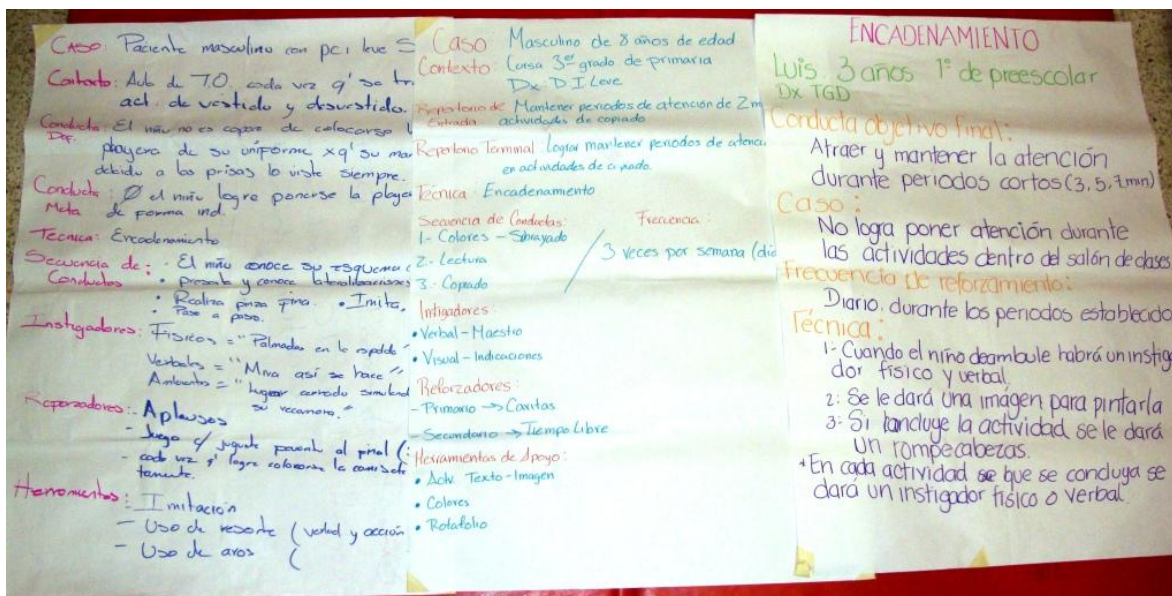 CASO: Paciente masculino con pci leve S
Contexto: Aula de T.O. cada vez q' se tra
act. de vestido y desvestido.
Conducta: El niño no es capaz de colocarse l
Def.
playera de su uniforme xq' su ma
debido a las prisas lo viste siempre.
Conducta: Ø el niño logre ponerse la playe
Meta de forma ind.
Tecnica: Encadenamiento
Secuencia de: · El niño conoce su esquema c
Conductas • presenta y conoce
• Realiza pinza fina. • Imita,
• Paso a paso.
Instigadores: Fisicos = "Palmadas en la espalda"
Verbales = "Mira así se hace"
Ambiente = "lugar cerrado simuland
su recamara."
Reforzadores: - Aplausos
- Juego c/ juguete al final (
- cada vez q' logre colocarse la camiset
tamente.
Herramientas: Imitación
- Uso de resorte (verbal y acción
- Uso de aros (
Caso: Masculino de 8 años de edad
Contexto: Cursa 3er grado de primaria
Dx - D I Leve
Repertorio de Mantener periodos de atención de 2 m
Entrada actividades de copiado.
Repertorio Terminal: Lograr mantener periodos de atenci
en actividades de copiado.
Técnica: Encadenamiento
Secuencia de Conductas: Frecuencia:
1- Colores - Subrayado
2- Lectura 3 veces por semana (dia
3- Copiado
Intigadores:
• Verbal - Maestro
• Visual - Indicaciones
Reforzadores:
- Primario → Caritas
- Secundario → Tiempo Libre
Herramientas de Apoyo:
• Activ. Texto - Imagen
• Colores
• Rotafolio
ENCADENAMIENTO
Luis 3 años 1° de preescolar
Dx TGD
Conducta objetivo final:
Atraer y mantener la atención
durante periodos cortos (3, 5, 7 min)
Caso:
No logra poner atención durante
las actividades dentro del salón de clases
Frecuencia de reforzamiento:
Diario, durante los periodos establecido
Técnica:
1- Cuando el niño deambule habrá un instiga
dor físico y verbal.
2: Se le dará una imágen para pintarla
3: Si concluye la actividad se le dará
un rompecabezas.
*En cada actividad que se concluya se
dará un instigador físico o verbal.